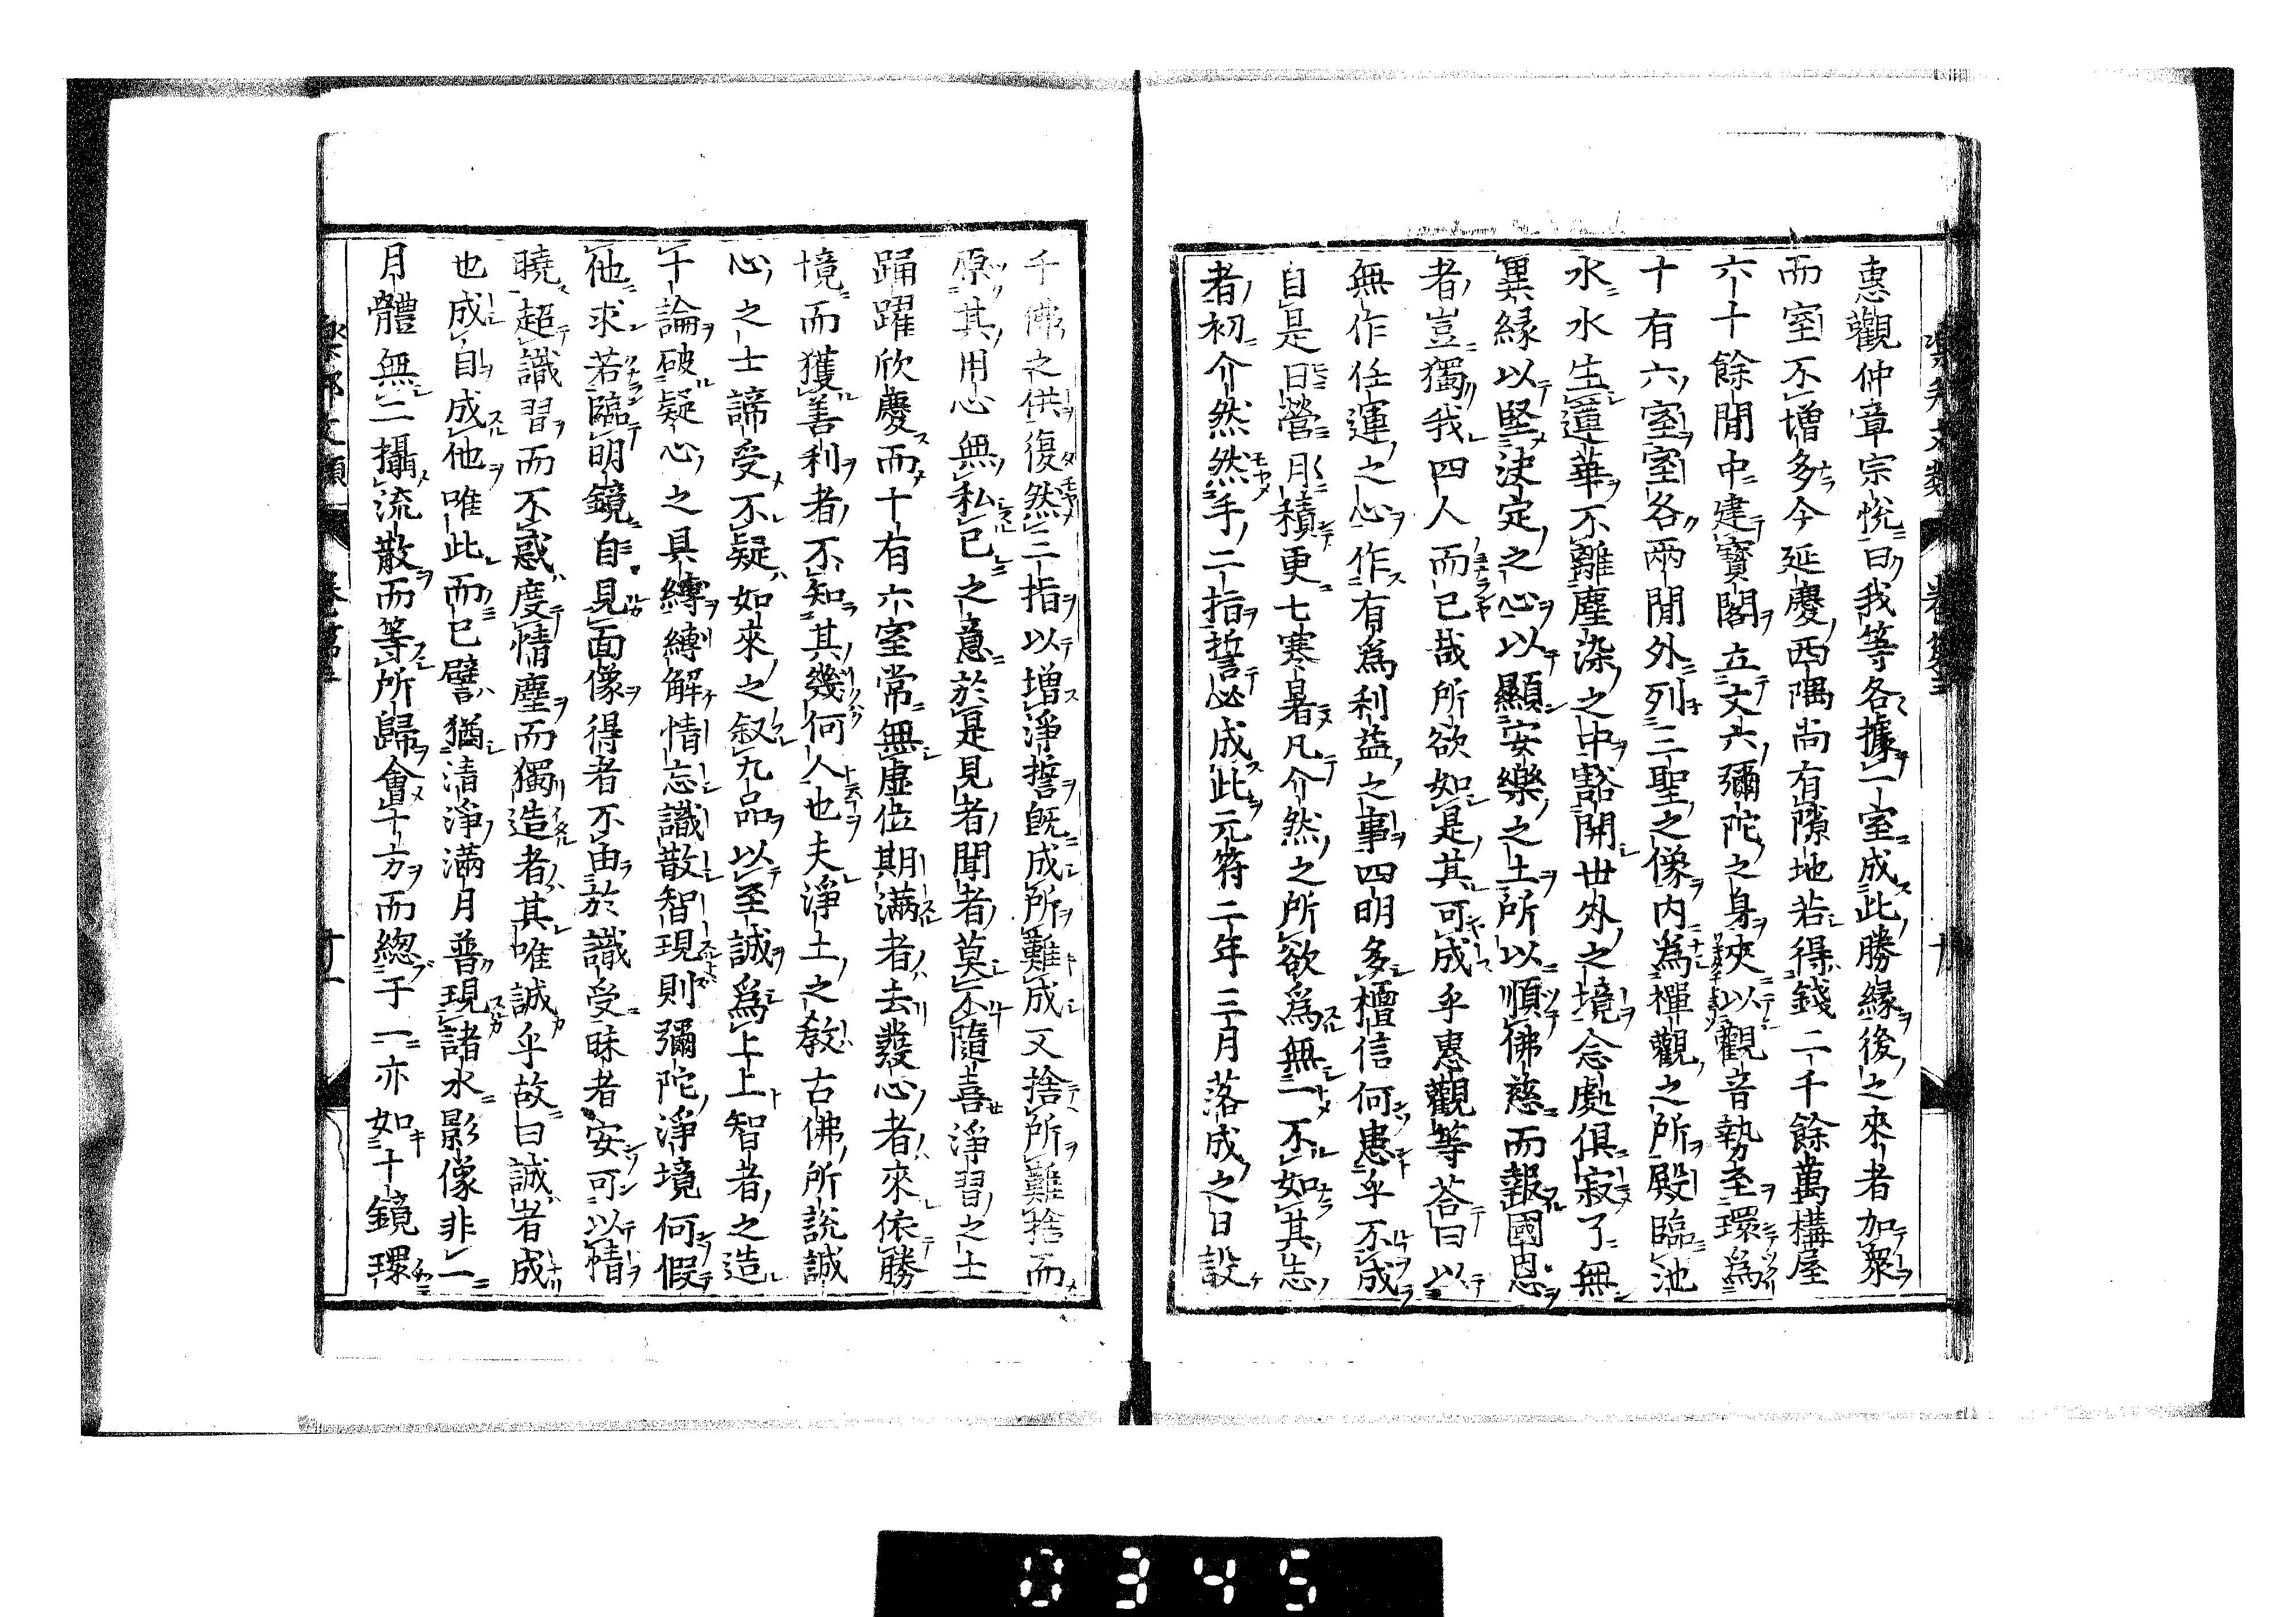 惠觀仲章宗悅曰我等各據一室成此勝緣後之來者加衆
而室不增多今延慶西隅尚有隙地若得錢二千餘萬構屋
六十餘間中建寶閣立丈六彌陀之身夾以觀音勢至環爲
十有六室室各兩間外列三聖之像內爲禪觀之所殿臨池
水水生蓮華不離塵染之中豁開世外之境念處俱寂了無
異緣以堅決定之心以顯安樂之土所以順佛慈而報國恩
者豈獨我四人而已哉所欲如是其可成乎惠觀等荅曰以
無作任運之心作有爲利益之事四明多檀信何患乎不成
自是日營月積更七寒暑凡介然之所欲爲無一不如其志
者初介然然手二指誓必成此元符二年三月落成之日設
千佛之供復然三指以增淨誓旣成所難成又捨所難捨而
原其用心無私已之意於是見者聞者莫不隨喜淨習之士
踊躍欣慶而十有六室常無虛位期滿者去發心者來依勝
境而獲善利者不知其幾何人也夫淨土之敎古佛所說誠
心之士諦受不疑如來之叙九品以至誠爲上上智者之造
十論破疑心之具縛縛解情忘識散智現則彌陀淨境何假
他求若臨明鏡自見面像得者不由於識受昧者安可以情
曉超識習而不惑度情塵而獨造者其唯誠乎故曰誠者成
也成自成他唯此而已譬猶清淨滿月普現諸水影像非一
月體無二攝流散而等所歸會十方而總于一亦如十鏡環
樂邦文類 卷第三
0345